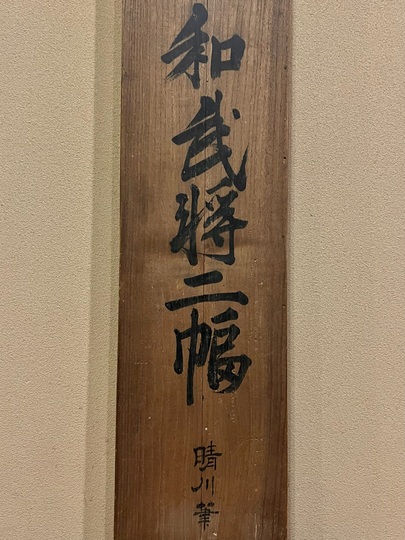 和武将二幅
晴川筆